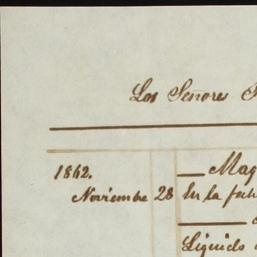 Los Señores
1862.
Noviembre 28 En la
Liquido